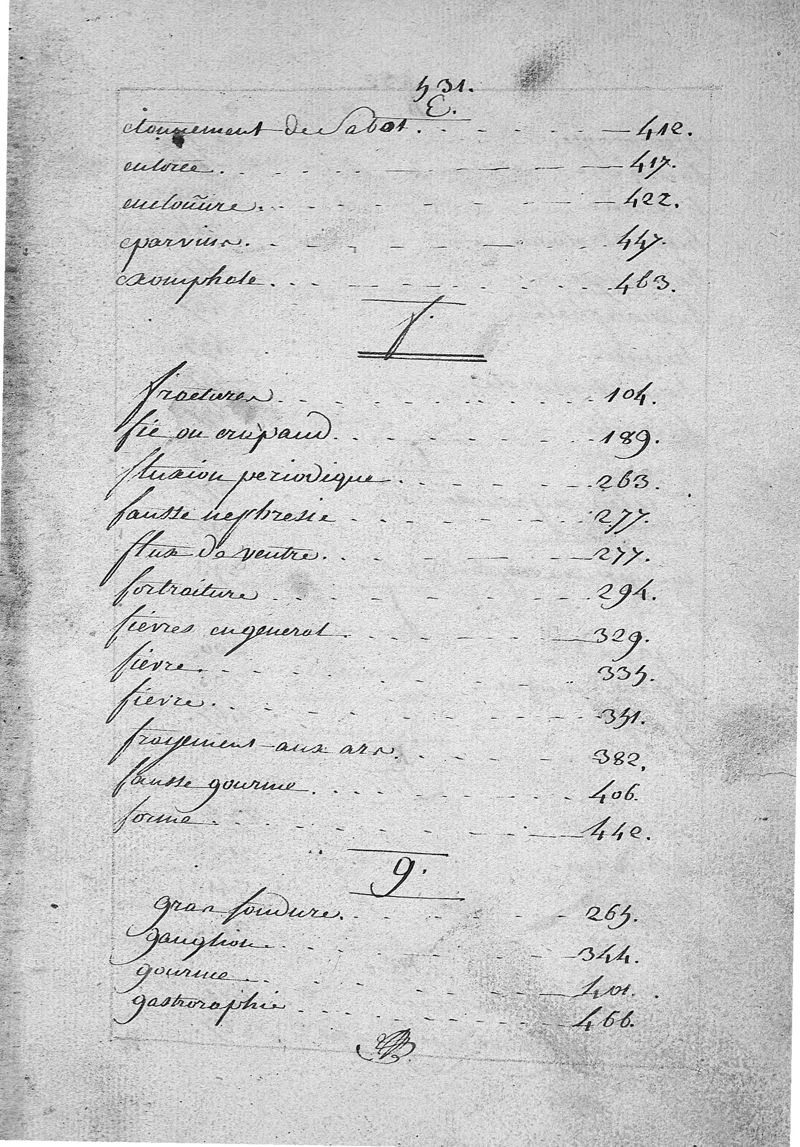 531.
E.
etonnement de Sabot. 412.
entorce. 417.
enclouüre. 422.
eparvins. 447.
exomphale. 463.
f.
fractures. 104.
fic ou crapaud. 189.
fluxion periodique. 263.
fausse nephresie. 277.
flux de ventre. 277.
fortraiture. 294.
fiévres en général. 329.
fiévre. 335.
fiévre. 351.
frayement aux ars. 382.
fausse gourme. 406.
forme. 442.
g.
gras fondure. 265.
ganglion. 344.
gourme. 401.
gastroraphie. 466.